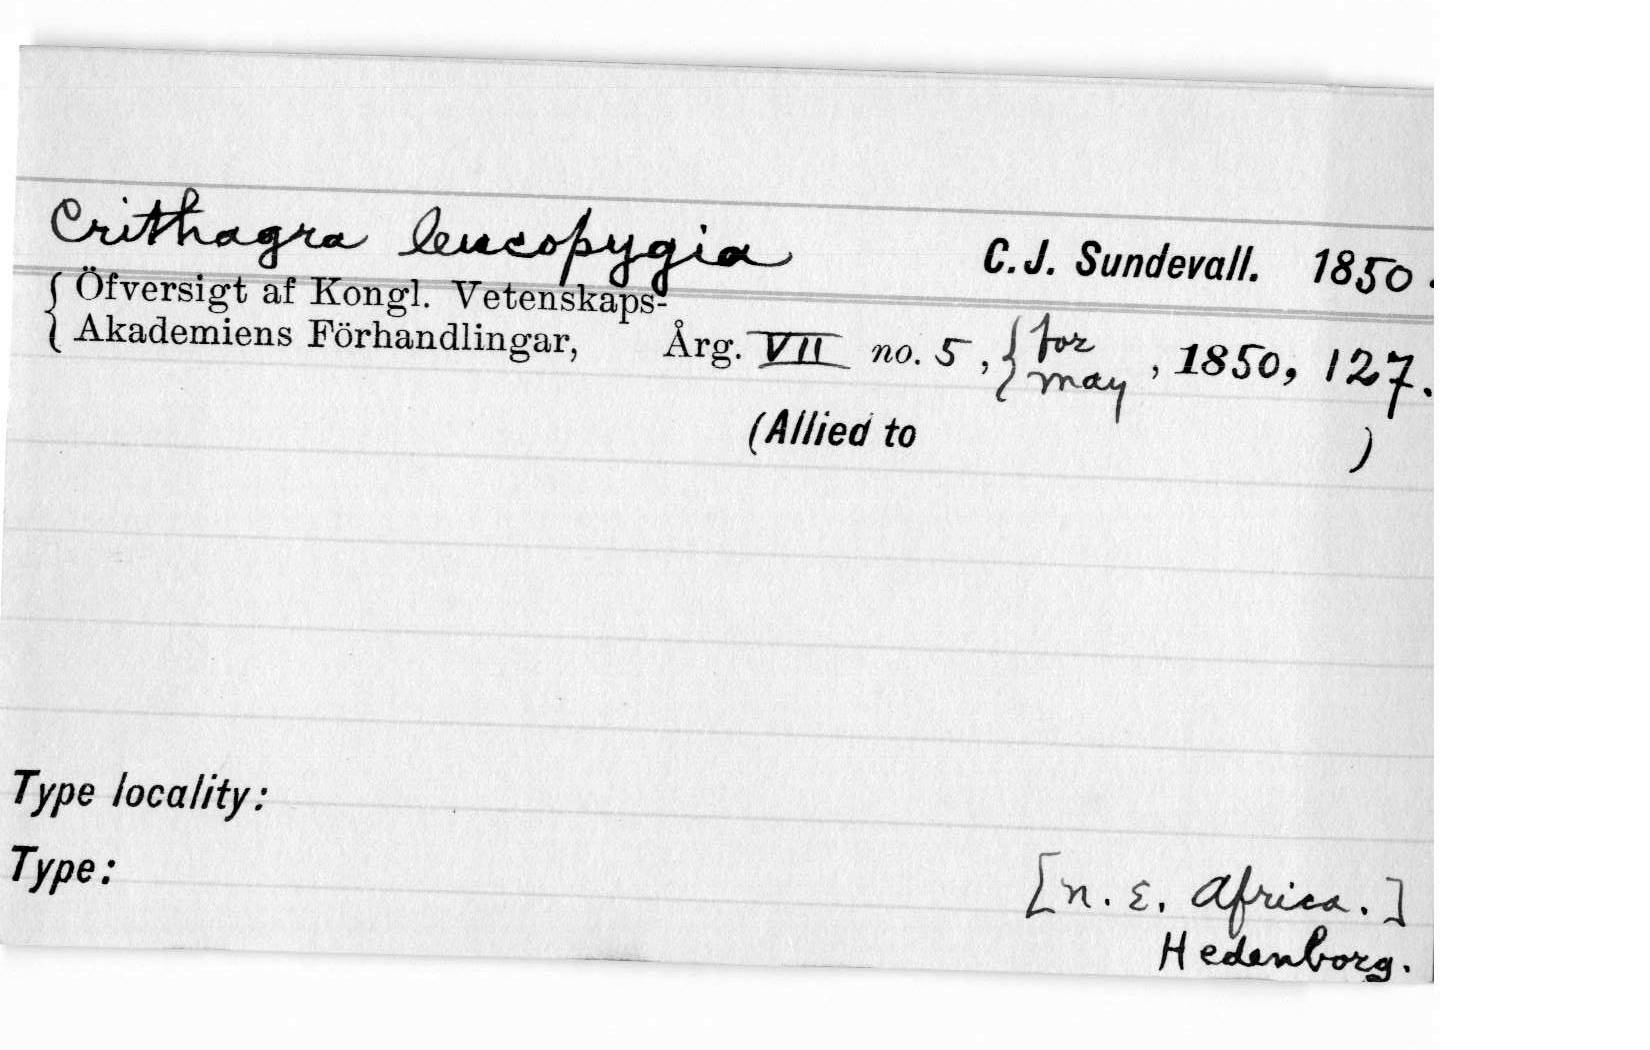 Crithagra leucopygia C. J. Sundevall. 1850.
{ Öfversigt af Kongl. Vetenskaps-
Akademiens Förhandlingar, Årg. VII no. 5, { for
may, 1850, 127.
(Allied to )
Type locality:
Type:
[n. E. Africa.]
Hedenborg.